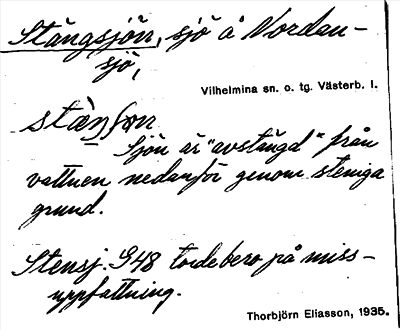 Stångsjön, sjö å Nordan-
sjö,
Vilhelmina sn. o. tg. Västerb. l.
Sjön är "avstängd" från
vattnen nedanför genom steniga
grund.
Stensj. G48 torde bero på miss-
uppfattning.
Thorbjörn Eliasson, 1935.